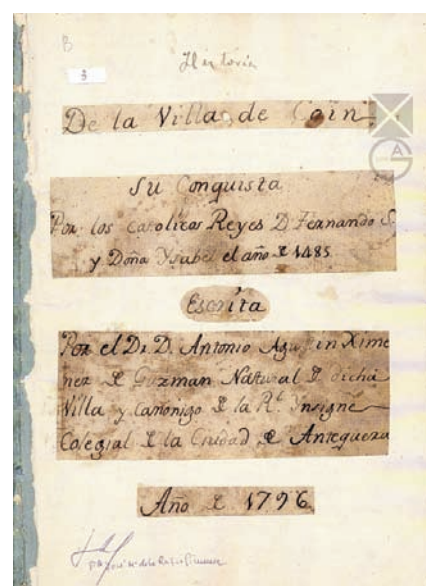 B
3
Historia
De la Villa de Coin
Su Conquista
Por los catolicos Reyes D. Fernando S.
y Doña Ysabel el año de 1485
Escrita
Por el Dr. D. Antonio Agustin Xime
nez de Guzman Natural de dicha
Villa y canonigo de la Rl. Ynsigne
Colegial de la Ciudad de Antequera
Año de 1796